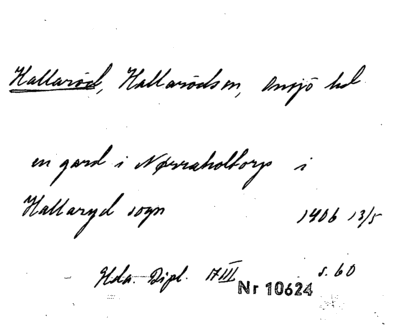 Hallaröd, Hallarödssn, Onsjö hd
en gard i Nørraholtorp i
Hallaryd sogn 1406 13/5
Hda. Dipl. 17 III s. 60
Nr 10624